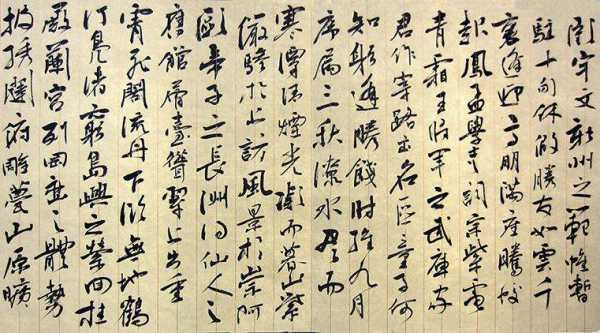 宇文新州之範帷暫
駐十旬休假勝友如雲千
里逢迎高明滿座騰蛟
起鳳孟學士詞宗紫電
青霜王將軍之武庫家
君作宰路出名區童子何
知躬逢勝餞時維九月
序屬三秋潦水盡而
寒潭清煙光凝而暮山紫
儼驂於上訪風景於崇阿
臨帝子之長洲得仙人之
舊館層臺聳翠上出重
霄飛閣流丹下臨無地鶴
汀鳧渚窮島嶼之縈回桂
殿蘭宮列岡巒之體勢
披繡闥俯雕甍山原曠